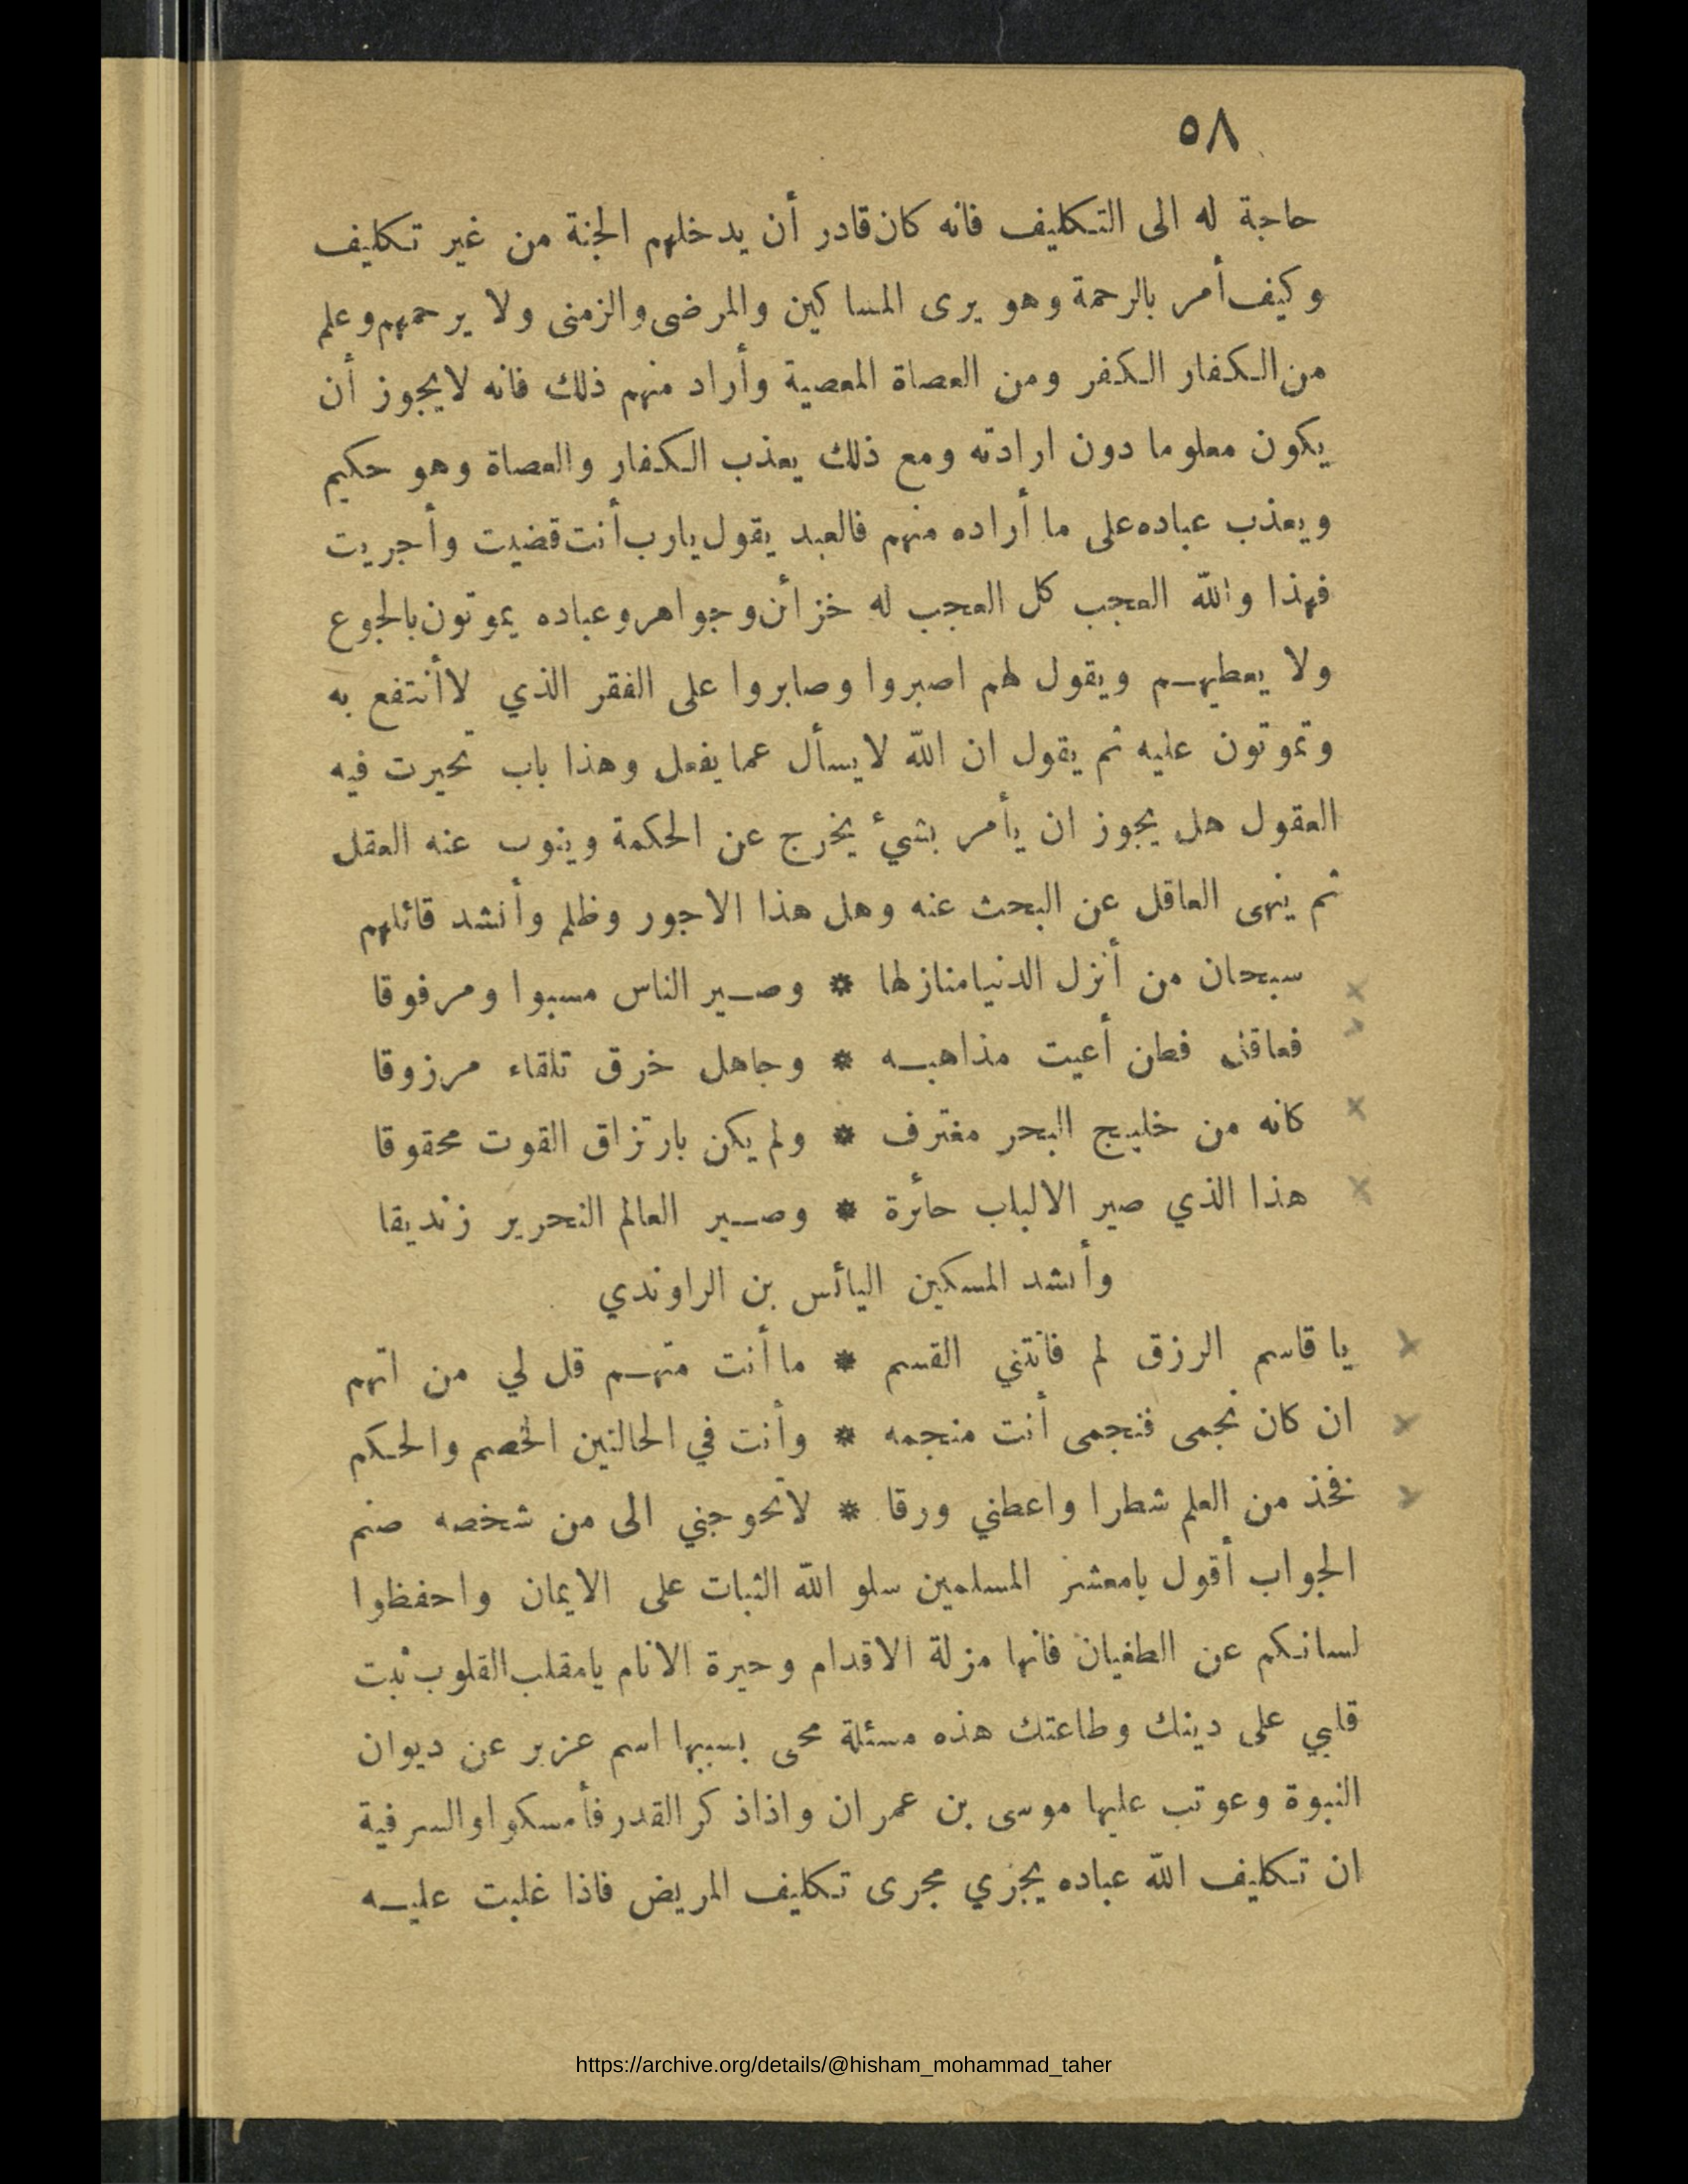 ٥٨
حاجة له الى التكليف فانه كان قادر أن يدخلهم الجنة من غير تكليف
وكيف أمر بالرحمة وهو يرى المساكين والمرضى والزمنى ولا يرحمهم وعلم
من الكفار الكفر ومن العصاة المعصية وأراد منهم ذلك فانه لايجوز أن
يكون معلوما دون ارادته ومع ذلك يعذب الكفار والعصاة وهو حكيم
ويعذب عباده على ما أراده منهم فالعبد يقول يارب أنت قضيت وأجريت
فهذا والله العجب كل العجب له خزائن وجواهر وعباده يموتون بالجوع
ولا يعطيهم ويقول لهم اصبروا وصابروا على الفقر الذي لاأنتفع به
وتموتون عليه ثم يقول ان الله لايسأل عما يفعل وهذا باب تحيرت فيه
العقول هل يجوز ان يأمر بشيء يخرج عن الحكمة وينوب عنه العقل
ثم ينهى العاقل عن البحث عنه وهل هذا الاجور وظلم وأنشد قائلهم
سبحان من أنزل الدنيا منازلها * وصير الناس مسبوا ومرفوقا
فعاقل فطن أعيت مذاهبه * وجاهل خرق تلقاء مرزوقا
كانه من خليج البحر مغترف * ولم يكن بارتزاق القوت محقوقا
هذا الذي صير الالباب حائرة * وصير العالم النحرير زنديقا
وأنشد المسكين اليائس بن الراوندي
يا قاسم الرزق لم فاتتني القسم * ما أنت متهم قل لي من اتهم
ان كان نجمى فنجمى أنت منجمه * وأنت في الحالتين الخصم والحكم
فخذ من العلم شطرا واعطني ورقا * لاتحوجني الى من شخصه صنم
الجواب أقول يامعشر المسلمين سلو الله الثبات على الايمان واحفظوا
لسانكم عن الطغيان فانها مزلة الاقدام وحيرة الانام يامقلب القلوب ثبت
قلبي على دينك وطاعتك هذه مسئلة محى بسببها اسم عزير عن ديوان
النبوة وعوتب عليها موسى بن عمران واذاذكر القدر فأمسكوا والسر فية
ان تكليف الله عباده يجزي مجرى تكليف المريض فاذا غلبت عليه
https://archive.org/details/@hisham_mohammad_taher